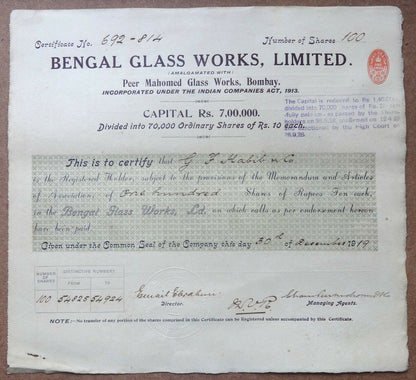 Certificate No. 692-814 Number of Shares 100
BENGAL GLASS WORKS, LIMITED.
(AMALGAMATED WITH)
Peer Mahomed Glass Works, Bombay.
INCORPORATED UNDER THE INDIAN COMPANIES ACT, 1913.
CAPITAL Rs. 7,00,000.
Divided into 70,000 Ordinary Shares of Rs. 10 each.
The Capital is reduced to Rs 1,40,000
divided into 70,000 shares of Rs. 2
fully paid
This is to certify that G F Habib & Co
is the Registered Holder, subject to the provisions of the Memorandum and Articles
of Association, of One hundred Shares of Rupees Ten each,
in the Bengal Glass Works, Ld. on which calls as per endorsement hereon
have been paid.
Given under the Common Seal of the Company this day 30th of December 1919
NUMBER OF SHARES DISTINCTIVE NUMBERS
FROM TO
100 54825 54924
Director.
Managing Agents.
NOTE:—No transfer of any portion of the shares comprised in this Certificate can be Registered unless accompanied by this Certificate.